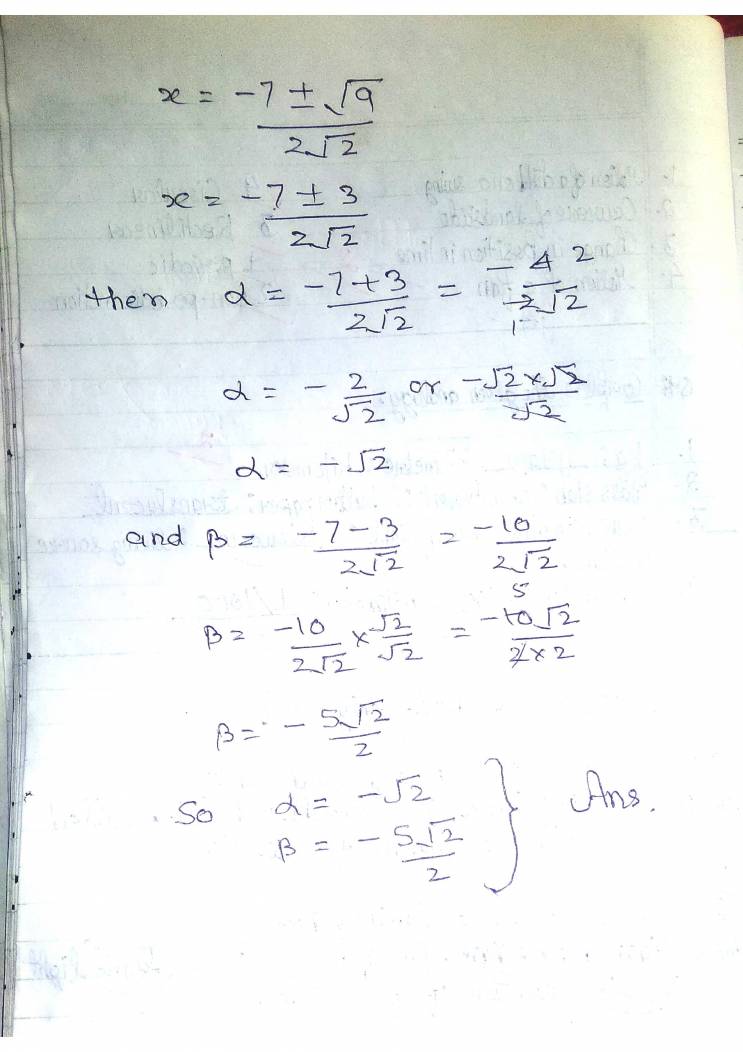 x = -7 ± √9 / 2√2
x = -7 ± 3 / 2√2
then α = -7+3 / 2√2 = -4 2 / 2√2 1
α = - 2/√2 or -√2×√2 / √2
α = -√2
and β = -7-3 / 2√2 = -10 / 2√2
β = -10 / 2√2 × √2/√2 = 5 -10√2 / 2×2
β = - 5√2 / 2
So α = -√2
β = - 5√2 / 2 } Ans.